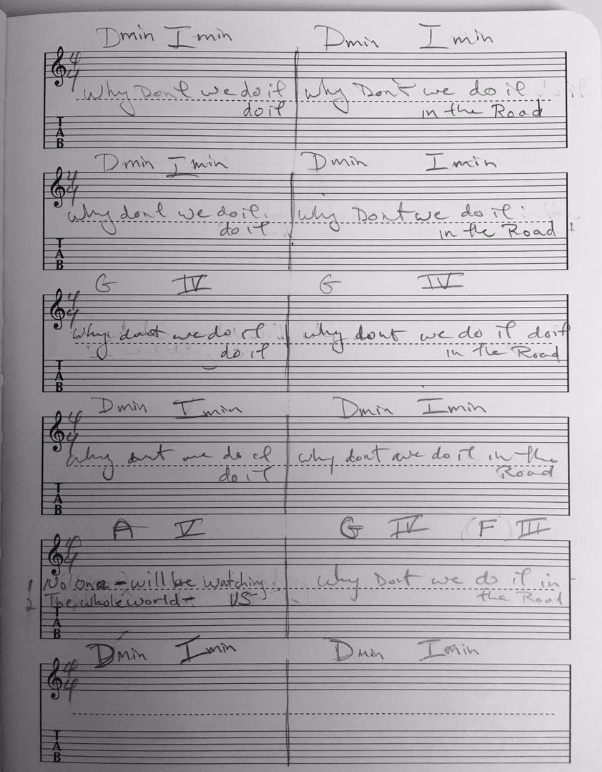 Dmin Imin Dmin Imin
4/4
Why Dont we do it Why Dont we do it
do it in the Road
TAB
Dmin Imin Dmin Imin
4/4
why dont we do it. why Dont we do it.
do it in the Road
TAB
G IV G IV
4/4
why dont we do it why dont we do it doit
do it in the Road
TAB
Dmin Imin Dmin Imin
4/4
why dont we do it why dont we do it in the
do it Road
TAB
A V G IV (F) III
4/4
1 No one - will be watching. why Dont we do it in
2 The whole world - US the Road
TAB
Dmin Imin Dmin Imin
4/4
TAB